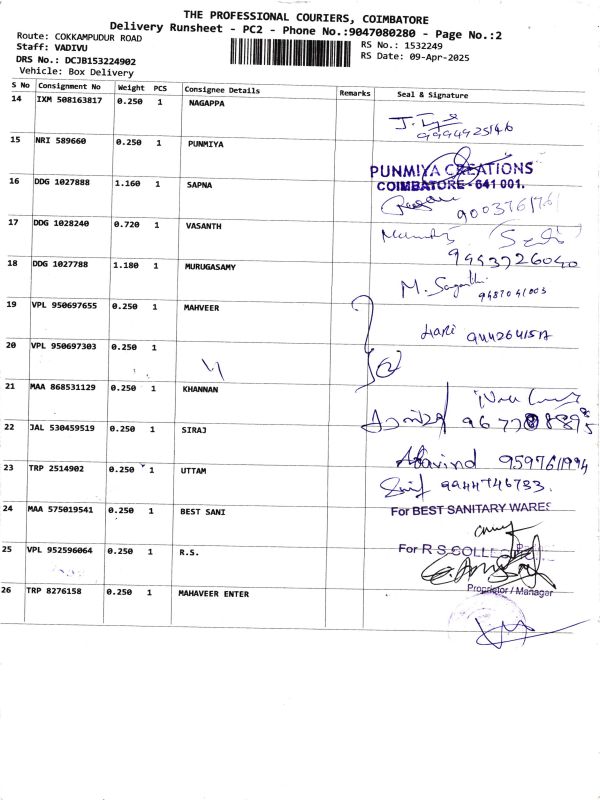 THE PROFESSIONAL COURIERS, COIMBATORE
Delivery Runsheet - PC2 - Phone No.:9047080280 - Page No.:2
Route: COKKAMPUDUR ROAD
RS No.: 1532249
Staff: VADIVU
RS Date: 09-Apr-2025
DRS No.: DCJB153224902
Vehicle: Box Delivery
S No Consignment No Weight PCS Consignee Details Remarks Seal & Signature
14 IXM 508163817 0.250 1 NAGAPPA
9994925146
15 NRI 589660 0.250 1 PUNMIYA
PUNMIYA CREATIONS
COIMBATORE - 641 001.
16 DDG 1027888 1.160 1 SAPNA
9003761761
17 DDG 1028240 0.720 1 VASANTH
9443726040
18 DDG 1027788 1.180 1 MURUGASAMY
M.
19 VPL 950697655 0.250 1 MAHVEER
Hari
20 VPL 950697303 0.250 1
21 MAA 868531129 0.250 1 KHANNAN
22 JAL 530459519 0.250 1 SIRAJ
Aravind 9597611994
23 TRP 2514902 0.250 1 UTTAM
9944746733.
24 MAA 575019541 0.250 1 BEST SANI
For BEST SANITARY WARES
25 VPL 952596064 0.250 1 R.S.
For R S COLLE
Proprietor / Manager
26 TRP 8276158 0.250 1 MAHAVEER ENTER